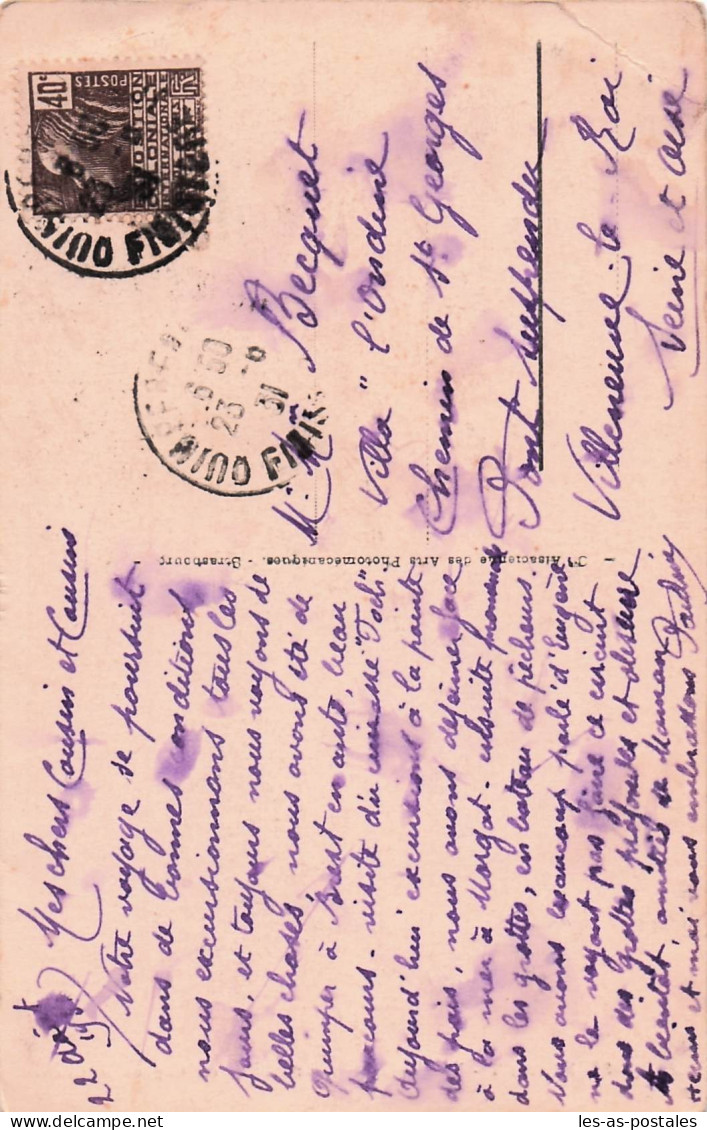 22 Août 31
Mes chers Cousin et Cousine
Notre voyage se poursuit
dans de bonnes conditions
nous excursionnons tous les
jours, et toujours nous voyons de
belles choses, nous avons été de
Quimper à Brest en auto, beau
parcours. visite du "Foch".
Aujourd'hui excursion à la pointe
des pois, nous avons déjeuné face
à la mer à Morgat. ensuite promenade
dans les grottes, en bateau de pêcheurs.
Vous avons beaucoup parlé d'Eugène
ne le voyant pas faire ce circuit
dans des grottes profondes et
bientôt, amitiés de Maman
et moi vous embrassons
Sté Alsacienne des Arts Photomécaniques. - Strasbourg
M. Mme Becquet
Villa "l'Ondine
Chemin de St Georges
Pont suspendu
Villeneuve le Roi
Seine et Oise
POSTES
40c
EXPOSITION
COLONIALE
INTERNATIONALE
QUIMPER FINISTERE
23 -8
31
les-as-postales - Delcampe.net